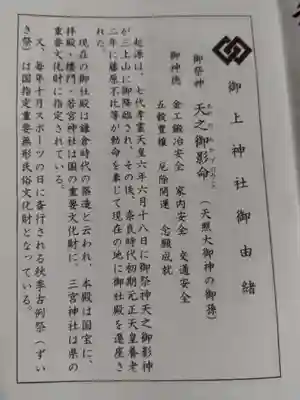 御上神社御由緒
御祭神 天之御影命（天照大御神の御孫）
あめのみかげのみこと
御神徳 金工鍛冶安全 家内安全 交通安全
五穀豊穣 厄除開運 念願成就
起源は、七代孝霊天皇六年六月十八日に御祭神天之御影神
が三上山に御降臨され、その後、奈良時代初期元正天皇養老
二年に藤原不比等が勅命を奉じて現在の地に御社殿を遷座さ
れた。
現在の御社殿は鎌倉時代の築造と云われ、本殿は国宝に、
拝殿・楼門・若宮神社は国の重要文化財に、三宮神社は県の
重要文化財に指定されている。
又、毎年十月スポーツの日に斎行される秋季古例祭（ずい
き祭）は国指定重要無形民俗文化財となっている。